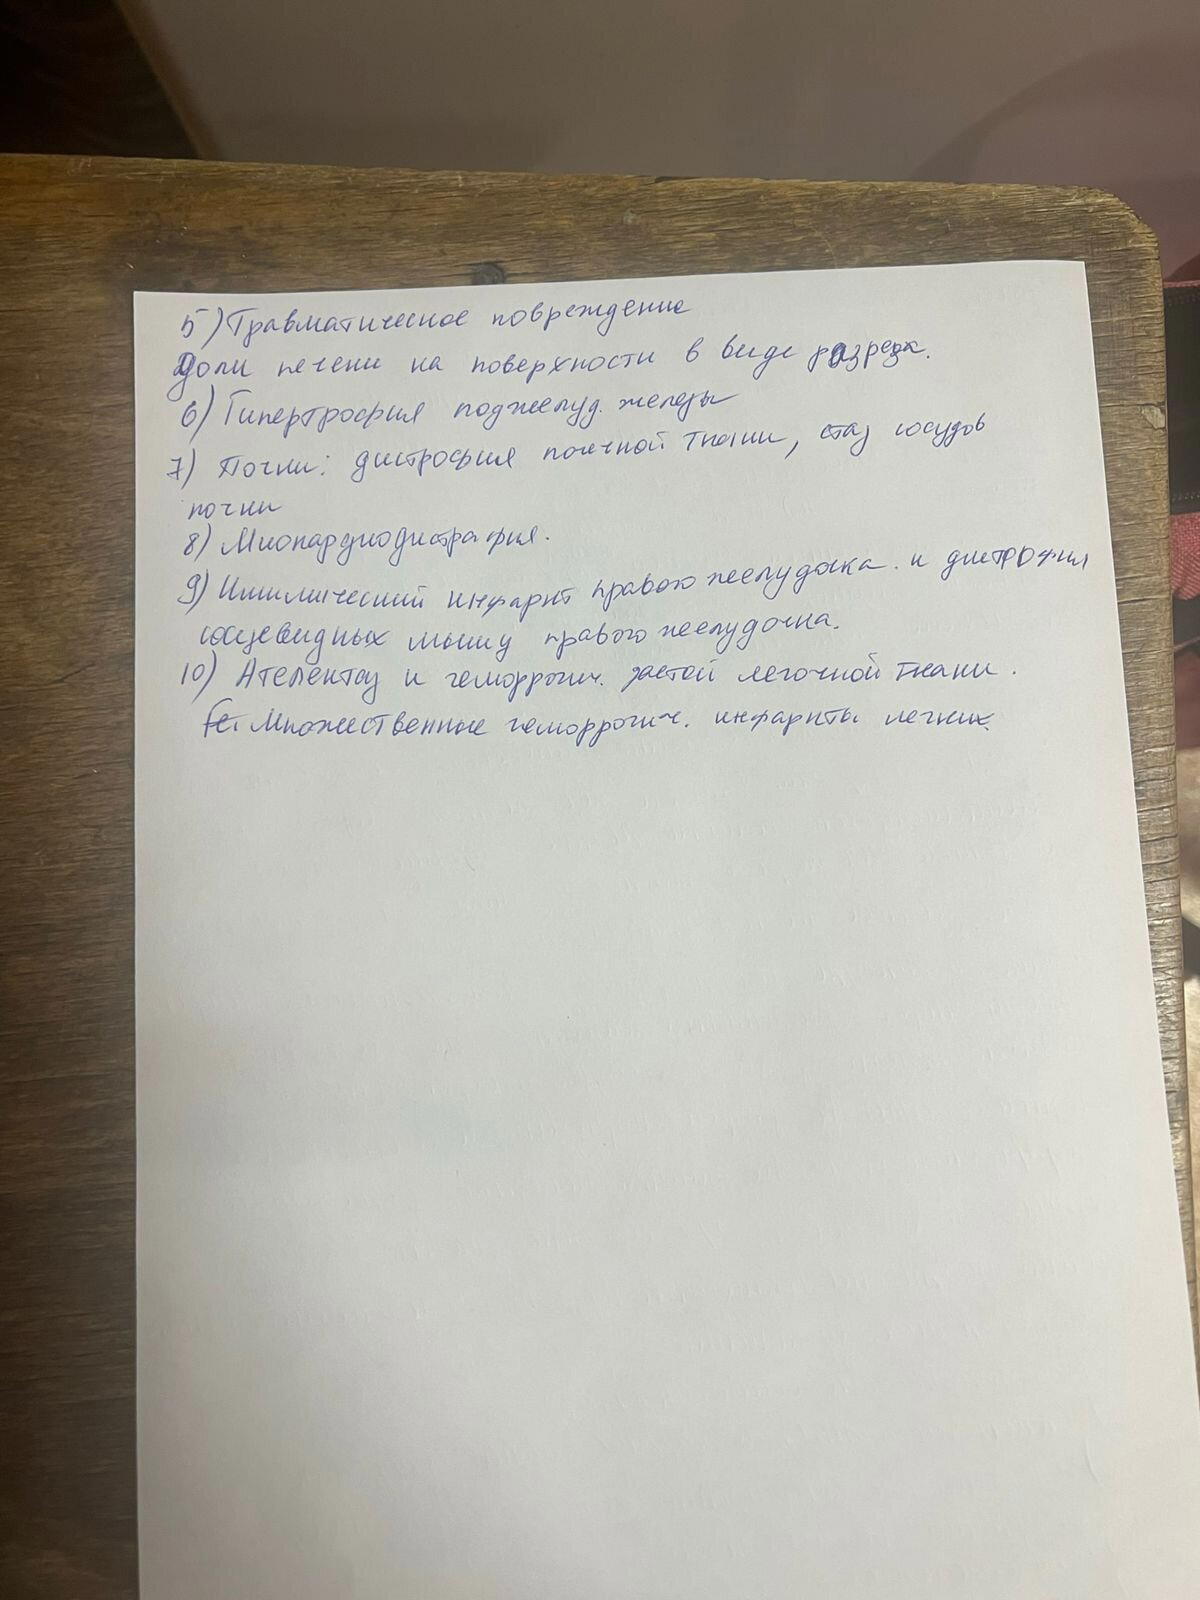 5) Травматическое повреждение
доли печени на поверхности в виде разреза.
6) Гипертрофия поджелуд. железы
7) Почки: дистрофия почечной ткани, стаз сосудов
почки
8) Миокардиодистрафия.
9) Ишимический инфаркт правого желудочка. и дистрофия
сосцевидных мышц правого желудочка.
10) Ателектаз и геморрогич. застой легочной ткани.
Множественные геморрогич. инфаркты легких.